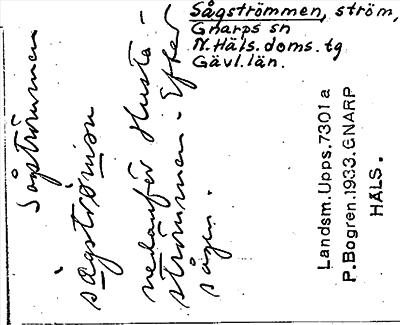 Sågströmmen, ström,
Gnarps sn
N. Häls. doms. tg
Gävl. län.
Sågströmmen
sågströmən
nedanför Husta-
strömmen. Efter
sågen.
Landsm. Upps. 7301 a
P. Bogren. 1933. GNARP
HÄLS.